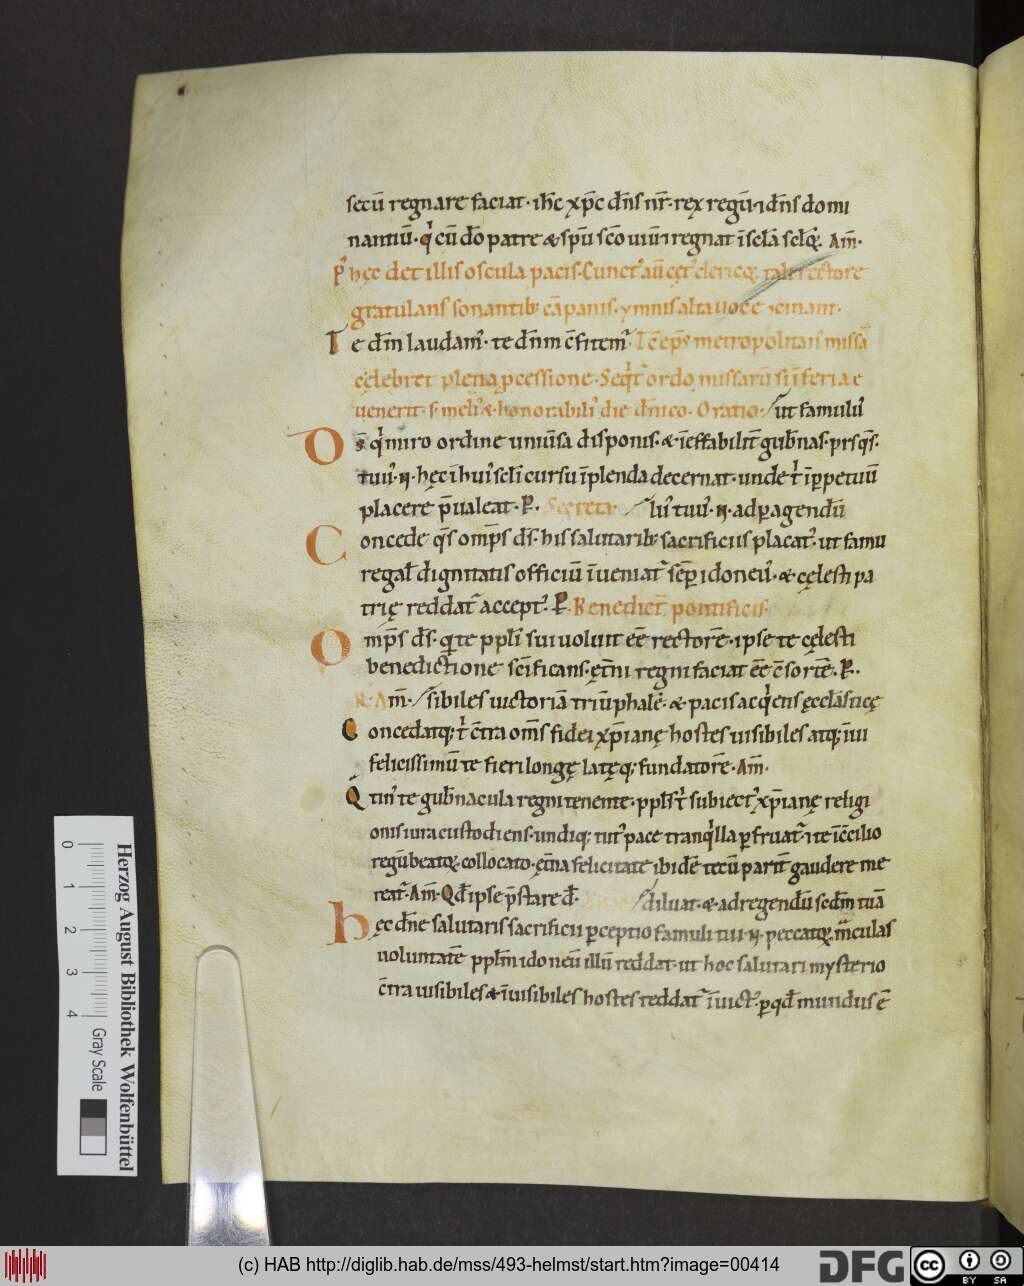 secū regnare faciat· ihc xp̄c dn̄s nr̄· rex regū ⁊ dn̄s domi
nantiū· qͥ cū dō patre & spū scō uiuit ⁊ regnat ī sclā sclōꝝ. Am̄·
p' hęc det illis oscula pacis· Cunct' aū cęt' clericoꝝ tali rectore
gratulans sonantibꝰ cāpanis· ymnis alta uoce ꝯcinant·
Te dm̄ laudam'· te dn̄m cfitem' Tc̄ ep̄s metropolitan' missā
cęlebret plena pcessione· Seqt̄ ordo missarū si ī feriae
uenerit· s; meli' & honorabili' die dn̄ico· Oratio· ut famulū
Ds̄ qͥ miro ordine uniūsa disponis· & ineffabilit̄ gub̄nas· pr̄s qs̄·
tuū· N· hęc ī hui' scli cursu īplenda decernat· unde t' ī ppetuū
placere p̄ualeat· P. Secreta· lū tuū· N· ad pagendū
Concede qs̄ omp̄s ds̄· his salutaribꝰ sacrificiis placat'· ut famu
regal̄ dignitatis officiū īueniat' semp idoneū· & cęlesti pa
trię reddat' accept'· P. Benedict' pontificis·
Omp̄s ds̄· q te ppl̄i sui uoluit eē rectorē· ipse te cęlesti
benedictione scīficans· ęt̄ni regni faciat eē csortē· P.
R· Am̄· sibiles uictoriā triūphalē· & pacis acqͥrens ęcclāsticę
Concedatq; t' ct̄ra om̄s fidei xp̄ianę hostes uisibiles atq; īui
felicissimū te fieri longę latęq; fundatorē· Am̄·
Qtin' te gub̄nacula regni tenente· ppl̄s t' subiect' xp̄ianę religi
onis iura custodiens· undiq; tut' pace tranqͥlla pfruat'· ⁊ te ī ccilio
regū beatoꝝ· collocato· ęt̄na felicitate ibidē tecū parit' gaudere me
reat'· Am̄· Qd̄ ipse p̄stare d̄· diluat· & ad regendū sc̄dm tuā
Hęc dn̄e salutaris sacrificii pceptio famuli tui N· peccatoꝝ maculas
uoluntatē ppl̄m idoneū illū reddat· ut hoc salutari mysterio
ct̄ra uisibiles & īuisibiles hostes reddat' īuict'· p qd̄ mundus ē
Herzog August Bibliothek Wolfenbüttel
0 1 2 3 4 Gray Scale
(c) HAB http://diglib.hab.de/mss/493-helmst/start.htm?image=00414
DFG cc BY SA